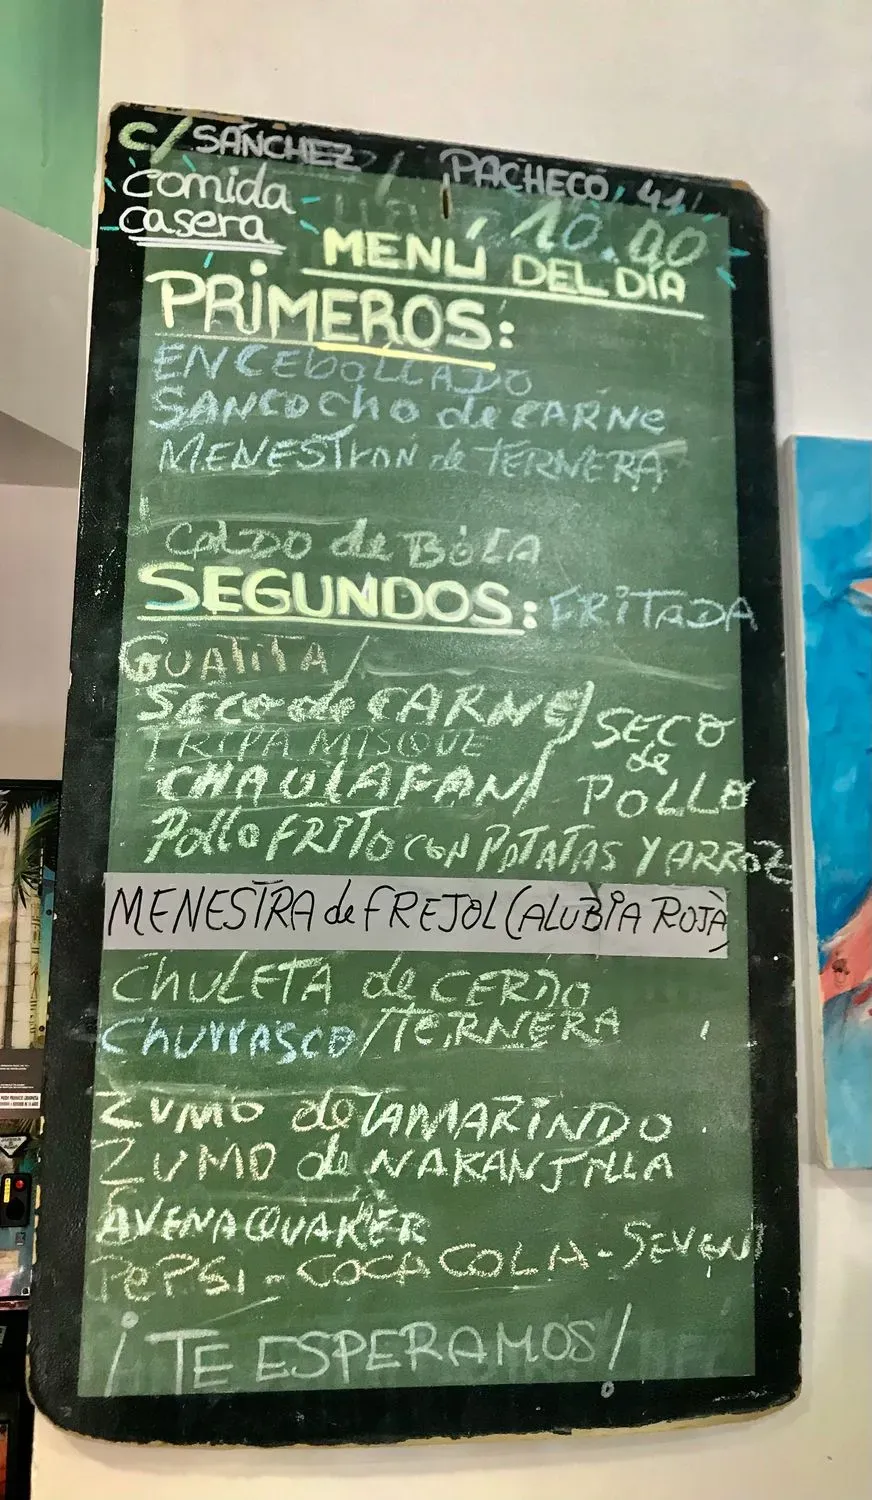 C/ SÁNCHEZ / PACHECO, 41
comida
casera
10.00
MENÚ DEL DÍA
PRIMEROS:
ENCEBOLLADO
SANCOCHO de CARNE
MENESTRON de TERNERA
CALDO de BOLA
SEGUNDOS: FRITADA
GUATITA /
SECO de CARNE / SECO
de
POLLO
TRIPA MISQUE
CHAULAFAN /
Pollo FRITO con PATATAS Y ARROZ
MENESTRA de FREJOL (ALUBIA ROJA)
CHULETA de CERDO
CHURRASCO / TERNERA
ZUMO de TAMARINDO
ZUMO de NARANJILLA
AVENA QUAKER
PEPSI - COCA COLA - SEVEN
¡TE ESPERAMOS!